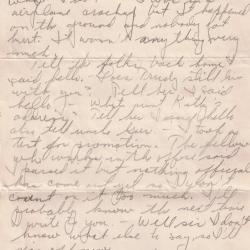 airplane crackup but it happened
on the ground and nobody got
hurt. It wasn't anything very
much.
Tell the folks back home I
said hello. Does Trudy still live
with you? Tell her I said
hello. What aunt Ruth's
address? Tell her I say hello
also tell uncle . Took a
test for promotion. The fellow
who working in the office said
I passed it but nothing official
has come out yet so I won't
count on it too much. I'll
probably know the next time
I write to you. Well sis I don't
know what else to say so I'll